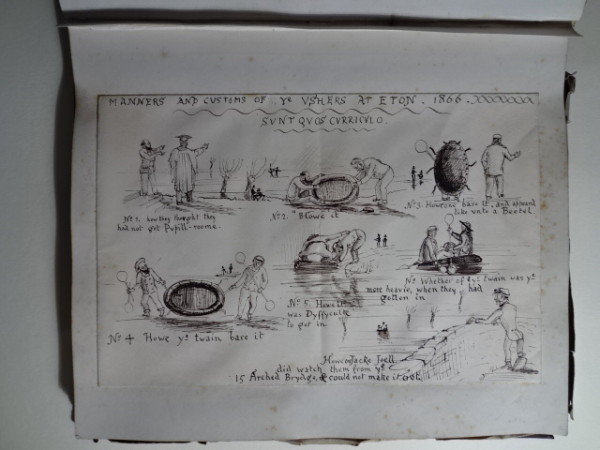 MANNERS AND CUSTOMS OF Yᵉ VSHERS AT ETON. 1866.
SVNT QVOS CVRRICVLO.
Nº 1. how they thought they
had not got Pupill-roome.
Nº 2. Howe it
Nº 3. Howe one bare it, and seemed
like unto a Beetel.
Nº 4 Howe yᵉ twain bare it
Nº 5. Howe it
was Dyffyculte
to put in
Nº Whether of yᵉ twain was yᵉ
more heavie, when they had
gotten in
Howe Jacke Joell
did watch them from yᵉ
15 Arched Brydge, & could not make it out.